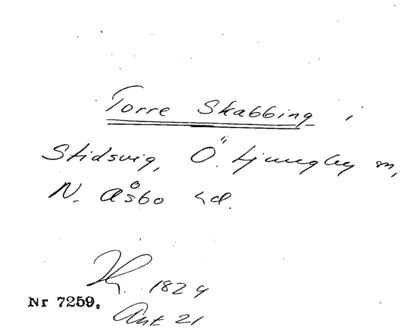 Torre Skabbing i
Stidsvig, Ö. Ljungby m,
N. Åsbo hd.
1824
Nr 7259.
Ant 21